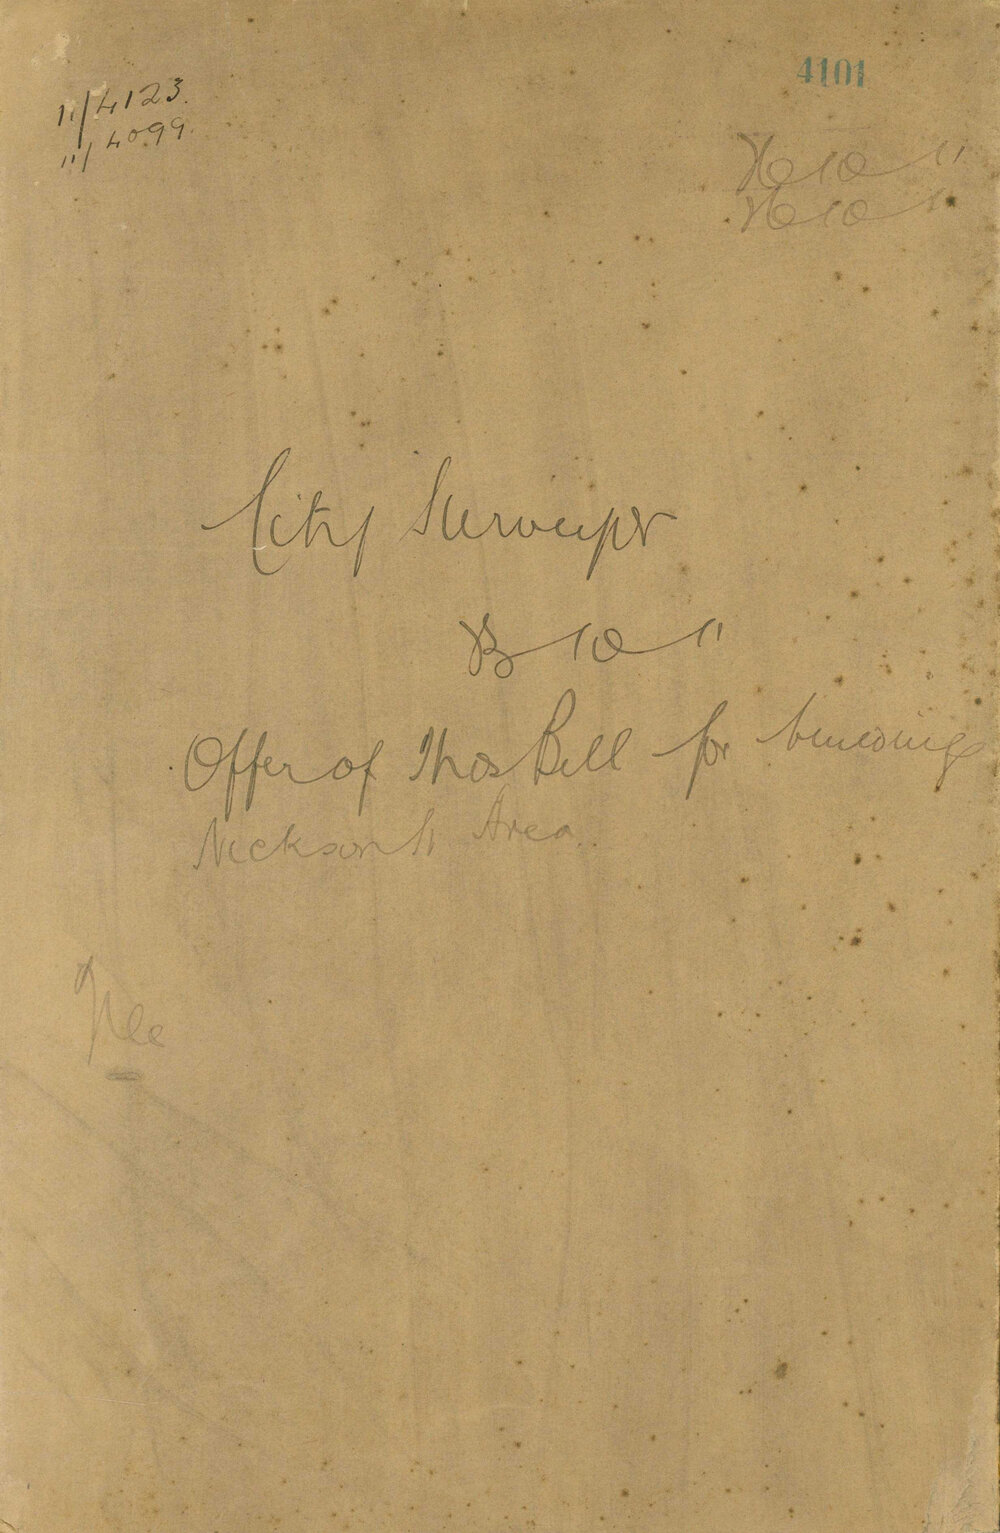 11/4123.
11/4099.
4101
16/10/11
16/10/11
City Surveyor
13/10/11
Offer of Thos Bell for building
Area
File